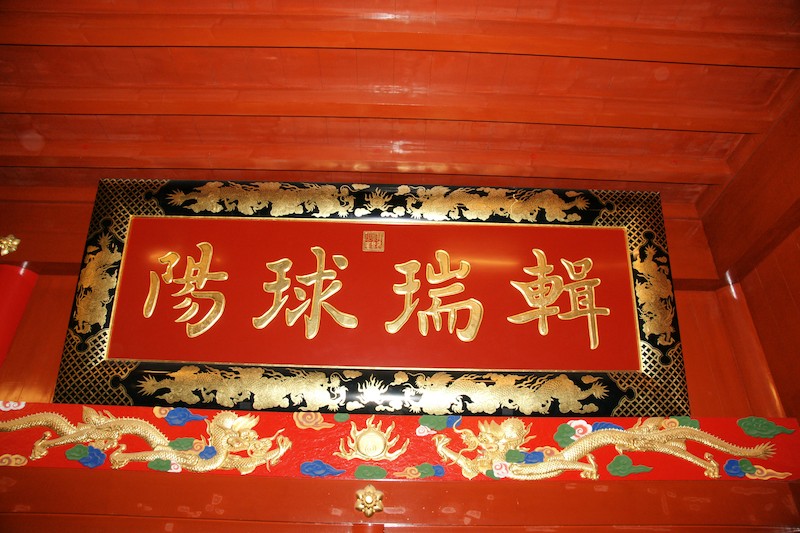 輯瑞球陽